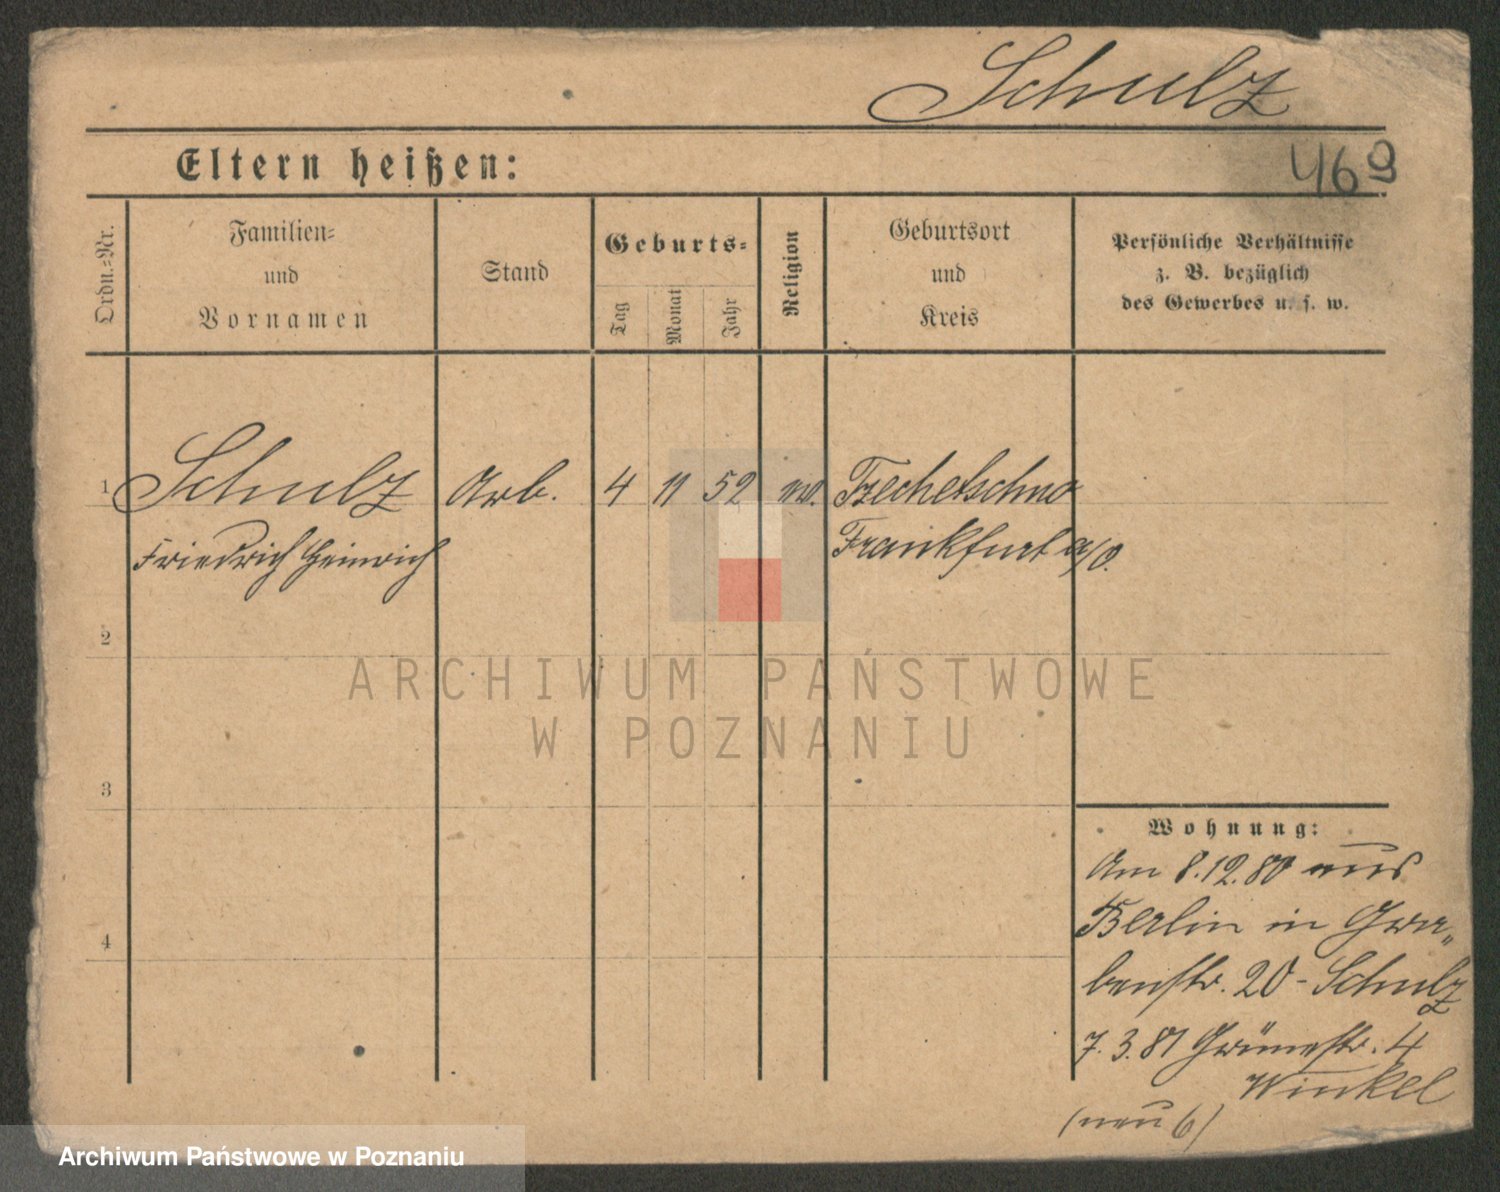 Schulz
Eltern heißen:
469
Ordn.-Nr.
Familien-
und
Vornamen
Stand
Geburts-
Tag
Monat
Jahr
Religion
Geburtsort
und
Kreis
Persönliche Verhältnisse
z. B. bezüglich
des Gewerbes u. s. w.
1 Schulz Arb. 4 11 52 ev. Tzschetzschnow
Friedrich Heinrich Frankfurt a/O.
2
3
4
Wohnung:
Am 8.12.80 aus
Berlin in Gra-
benstr. 20 - Schulz
7.3.81 Grünestr. 4
Winkel
(neu 6)
ARCHIWUM PAŃSTWOWE
W POZNANIU
Archiwum Państwowe w Poznaniu